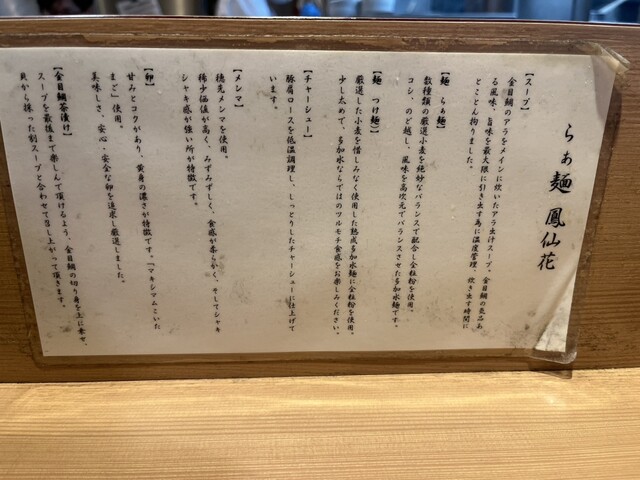 らぁ麺 鳳仙花
【スープ】
金目鯛のアラをメインに炊いたアラ出汁スープ。金目鯛の気品あ
る風味、旨味を最大限に引き出す為に温度管理、炊き出す時間に
とことん拘りました。
【麺 らぁ麺】
数種類の厳選小麦を絶妙なバランスで配合し全粒粉を使用。
コシ、のど越し、風味を高次元でバランスさせた多加水麺です。
【麺 つけ麺】
厳選した小麦を惜しみなく使用した熟成多加水麺に全粒粉を使用。
少し太めで、多加水ならではのツルモチ食感をお楽しみください。
【チャーシュー】
豚肩ロースを低温調理し、しっとりしたチャーシューに仕上げて
います。
【メンマ】
穂先メンマを使用。
稀少価値が高く、みずみずしく、食感が柔らかく、そしてシャキ
シャキ感が強い所が特徴です。
【卵】
甘みとコクがあり、黄身の濃さが特徴です。「マキシマムこいた
まご」使用。
美味しさ、安心、安全な卵を追求し厳選しました。
【金目鯛茶漬け】
スープを最後まで楽しんで頂けるよう、金目鯛の切り身を上に乗せ、
貝から採った割スープと合わせて召し上がって頂きます。